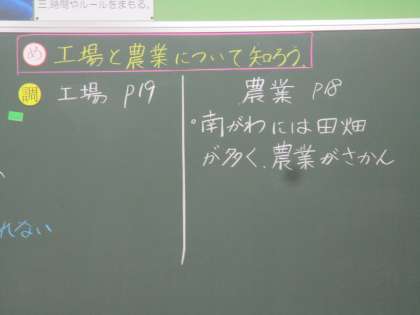 三.時間やルールをまもる。
め 工場と農業について知ろう。
調 工場 p19
農業 p18
・南がわには田畑
が多く、農業がさかん
れない